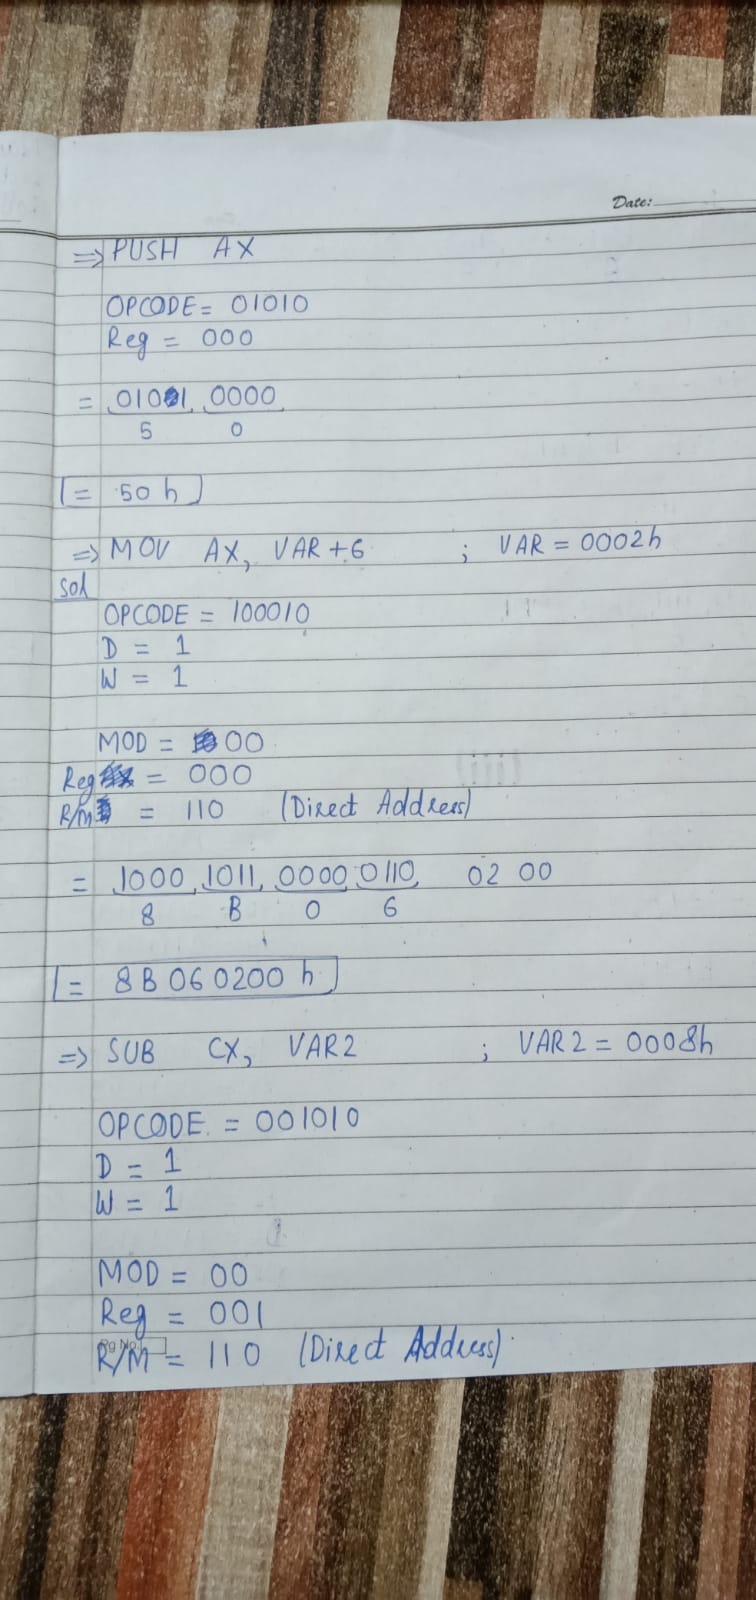 Date:
⇒ PUSH AX
OPCODE = 01010
Reg = 000
= 0101 0000
5 0
= 50 h
⇒ MOV AX, VAR+6 ; VAR = 0002h
Sol
OPCODE = 100010
D = 1
W = 1
MOD = 00
Reg = 000
R/M = 110 (Direct Address)
= 1000 1011 0000 0110 02 00
8 B 0 6
= 8B060200 h
⇒ SUB CX, VAR2 ; VAR2 = 0008h
OPCODE = 001010
D = 1
W = 1
MOD = 00
Reg = 001
Pg No.
R/M = 110 (Direct Address)